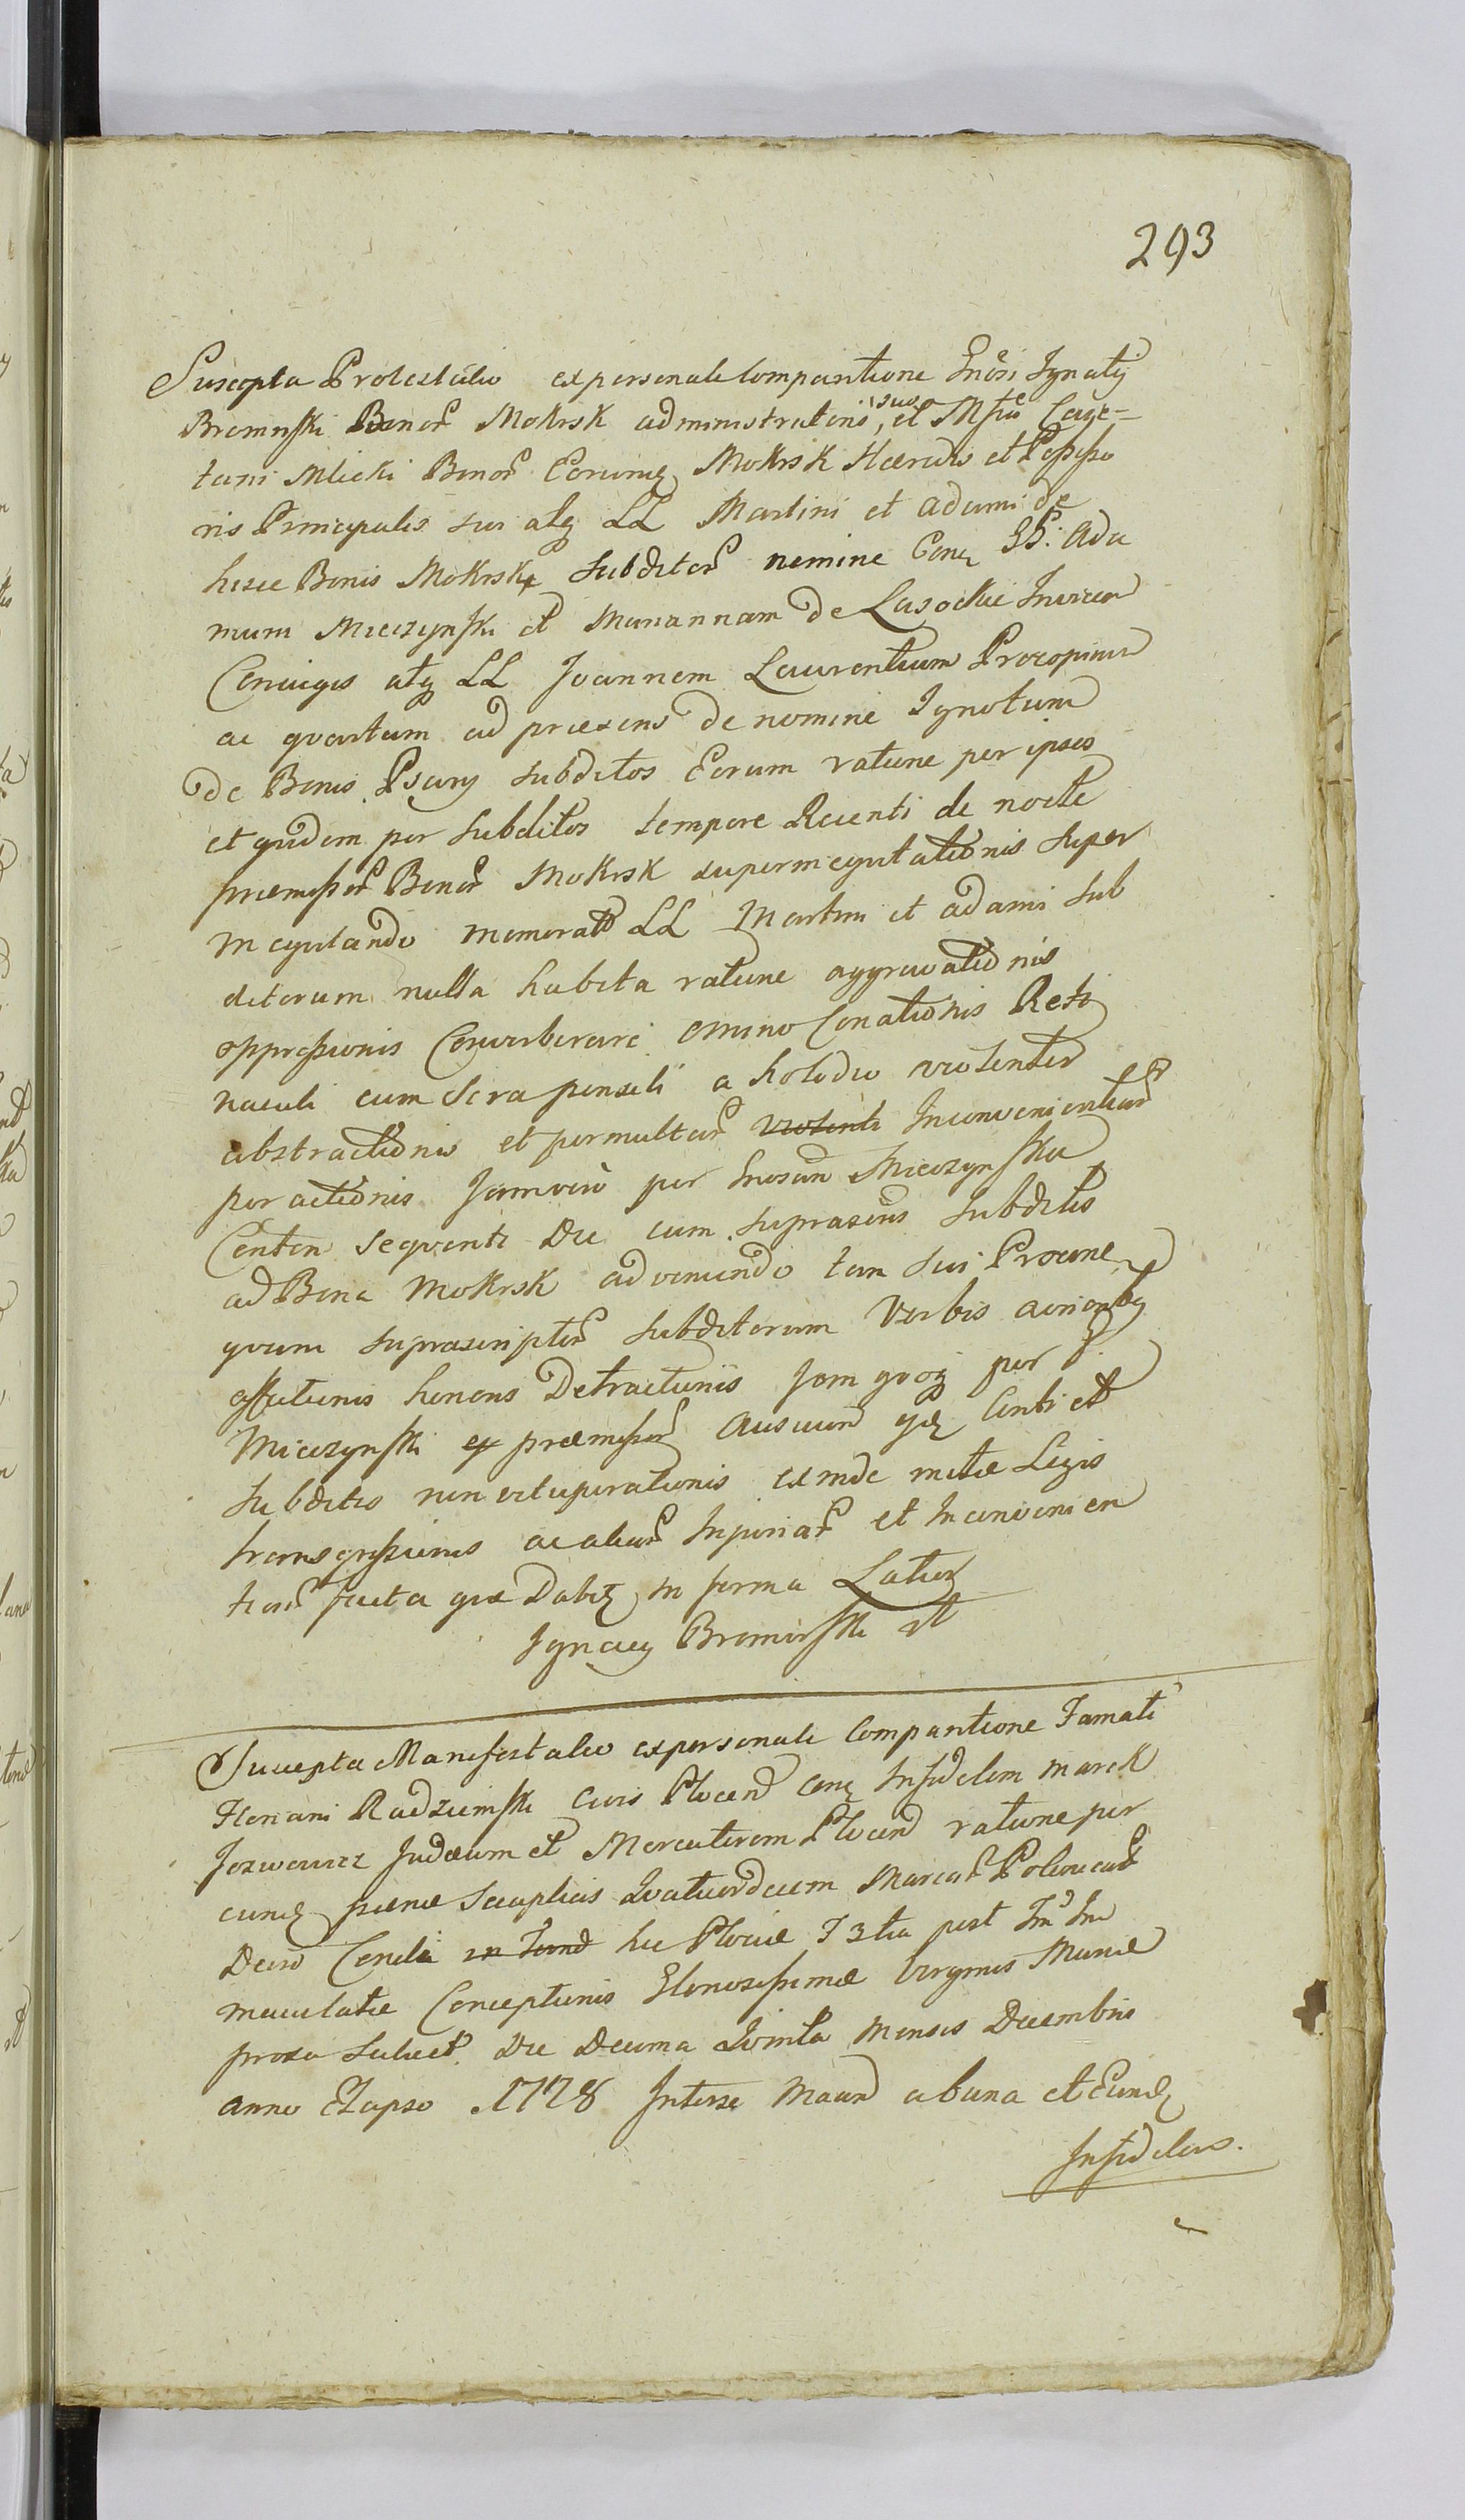 293
Suscepta Protestatio ex personali Comparitione Gnosi Ignatij
Bromirski Bonor Mokrsk administratoris, suo et Mfci Caje-
tani Mlicki Bonor Eorundq Mokrsk Haeredis et Possesso
ris Principalis sui atq LL Martini et Adami de
hisce Bonis Mokrsk Subditor nomine Conq GG. Ada
mum Mieczynski et Mariannam de Lasockie Invicem
Coniuges atq LL Joannem Laurentium Procopium
ac quartum ad praesens de nomine Ignotum
de Bonis Psary subditos Eorum ratione per ipsos
et quidem per subditos tempore Recenti de nocte
praemissor Bonor Mokrsk superinequitationis super
inequitando memorator LL Martini et Adami sub
ditorum nulla habita ratione aggravationis
oppressionis Converberare omnino Conationis Reti
naculi cum Sera pensili a holodio violenter
abstractionis et permultar Inconvenientiar
peractionis Jamvero per Gnosam Mieczynska
Conten sequenti Die cum suprascriis subditis
ad Bona Mokrsk adveniendo tam sui Procone
quam suprascriptor subditorum Verbis acriorbq
affationis honoris Detractionis Jam quoq per G.
Mieczynski ex praemissor ausuum qq Conti et
subditis non vituperationis exinde metae Legis
transgressionis ac aliar Injuriar et Inconvenien
tiar facta quae Dabq in forma Latiori
Ignacy Bromirski mp
Suscepta Manifestatio ex personali Comparitione Famati
Floriani Radziemski Civis Plocen Conq Infidelem Marek
Jozwowicz Judaeum et Mercatorem Plocen ratione per
eundq paenae Sexuplicis Quatuordecim Marcar Polonicar
Decro Condi hic Plociae F 3tia post Fm Im
maculatae Conceptionis Gloriosissimae Virginis Mariae
proxa Scilicet Die Decima Quinta Mensis Decembris
anno Elapso 1778 Inter se Maam ab una et Eundq
Infidelem.